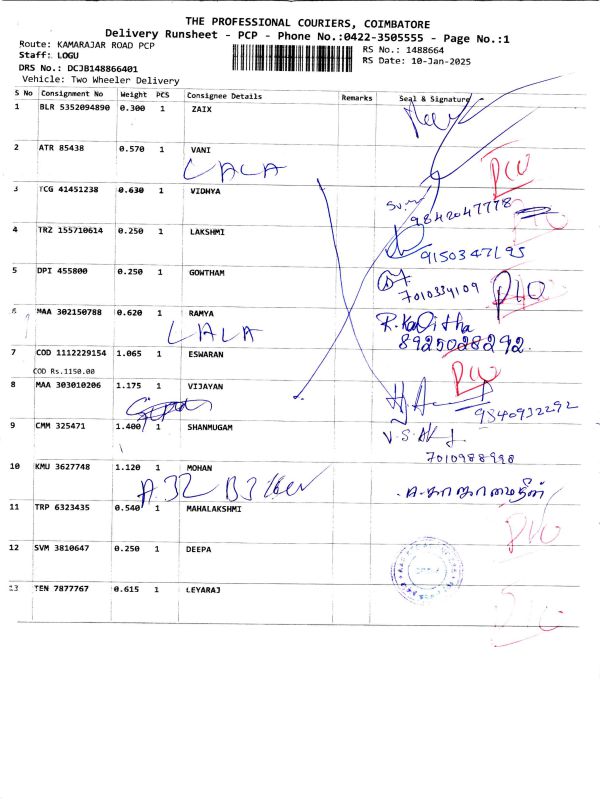 THE PROFESSIONAL COURIERS, COIMBATORE
Delivery Runsheet - PCP - Phone No.:0422-3505555 - Page No.:1
Route: KAMARAJAR ROAD PCP
RS No.: 1488664
Staff: LOGU
RS Date: 10-Jan-2025
DRS No.: DCJB148866401
Vehicle: Two Wheeler Delivery
S No Consignment No Weight PCS Consignee Details Remarks Seal & Signature
1 BLR 5352094890 0.300 1 ZAIX
2 ATR 85438 0.570 1 VANI
LALA
3 TCG 41451238 0.630 1 VIDHYA
9842047778
4 TRZ 155710614 0.250 1 LAKSHMI
9150347195
5 DPI 455800 0.250 1 GOWTHAM
7010334109
6 MAA 302150788 0.620 1 RAMYA
LALA
R.Kavitha
8925028292
7 COD 1112229154 1.065 1 ESWARAN
COD Rs.1150.00
8 MAA 303010206 1.175 1 VIJAYAN
9840932292
9 CMM 325471 1.400 1 SHANMUGAM
7010988998
10 KMU 3627748 1.120 1 MOHAN
11 TRP 6323435 0.540 1 MAHALAKSHMI
12 SVM 3810647 0.250 1 DEEPA
13 TEN 7877767 0.615 1 LEYARAJ